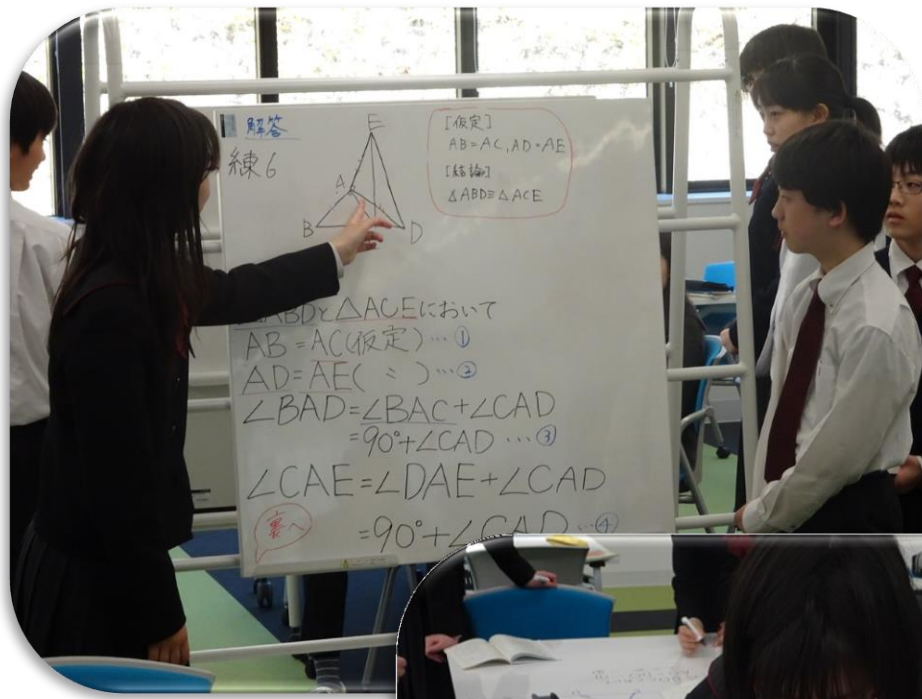 解答
練6
E
A
B
D
[仮定]
AB=AC, AD=AE
[結論]
△ABD≡△ACE
△ABDと△ACEにおいて
AB=AC(仮定)…①
AD=AE( 〃 )…②
∠BAD=∠BAC+∠CAD
=90°+∠CAD…③
∠CAE=∠DAE+∠CAD
=90°+∠CAD…④
裏へ